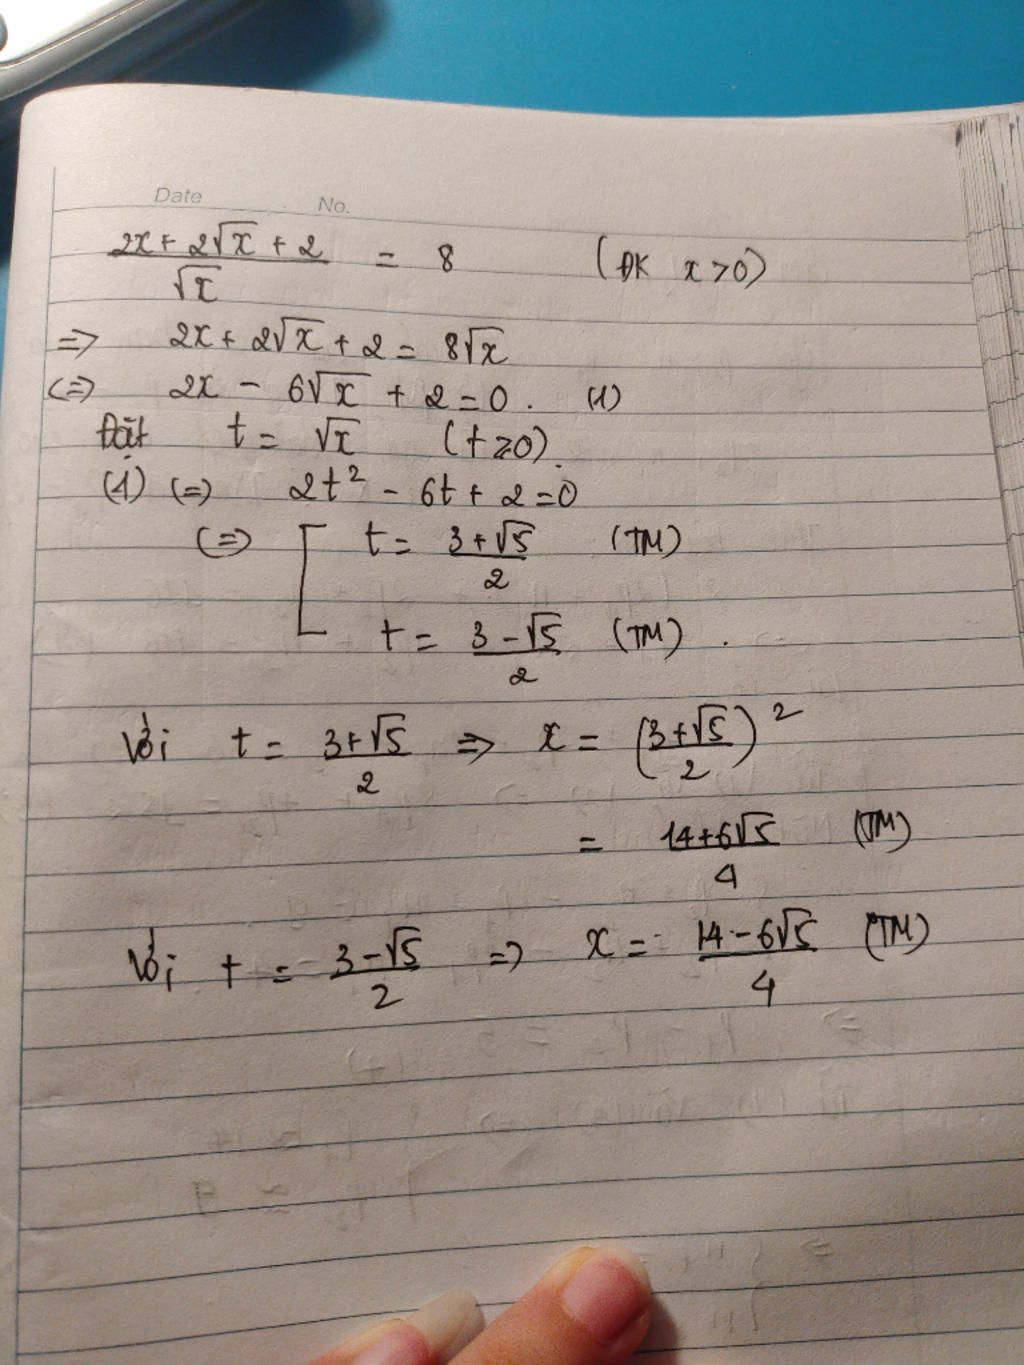 Date No.
(2x + 2√x + 2)/√x = 8 (ĐK x > 0)
=> 2x + 2√x + 2 = 8√x
(=) 2x - 6√x + 2 = 0. (1)
Đặt t = √x (t ≥ 0).
(1) (=) 2t² - 6t + 2 = 0
(=) [ t = (3 + √5)/2 (TM)
t = (3 - √5)/2 (TM).
Với t = (3 + √5)/2 => x = ((3 + √5)/2)²
= (14 + 6√5)/4 (TM)
Với t = (3 - √5)/2 => x = (14 - 6√5)/4 (TM)